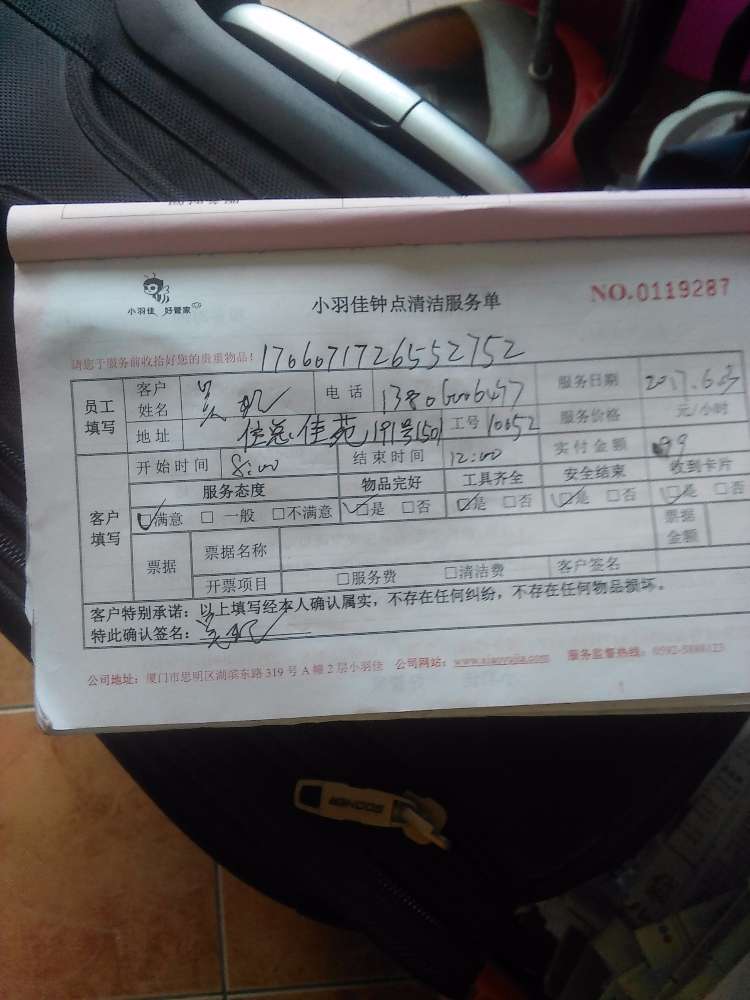 小羽佳 好管家
小羽佳钟点清洁服务单
NO.0119287
请您于服务前收拾好您的贵重物品!
1706071726552752
员工填写 客户姓名 电话 13806006447 服务日期 2017.6.
地址 佳苑191号1501 工号 10052 服务价格 元/小时
客户填写 开始时间 8:00 结束时间 12:00 实付金额 99
服务态度 物品完好 工具齐全 安全结束 收到卡片
☑满意 □ 一般 □不满意 ☑是 □否 ☑是 □否 ☑是 □否 ☑是 □否
票据 票据名称 票据金额
开票项目 □服务费 □清洁费 客户签名
客户特别承诺:以上填写经本人确认属实,不存在任何纠纷,不存在任何物品损坏。
特此确认签名:
公司地址:厦门市思明区湖滨东路 319 号 A 幢 2 层小羽佳 公司网站:www.xiaoyujia.com 服务监督热线:0592-5888123
1
SOGNER